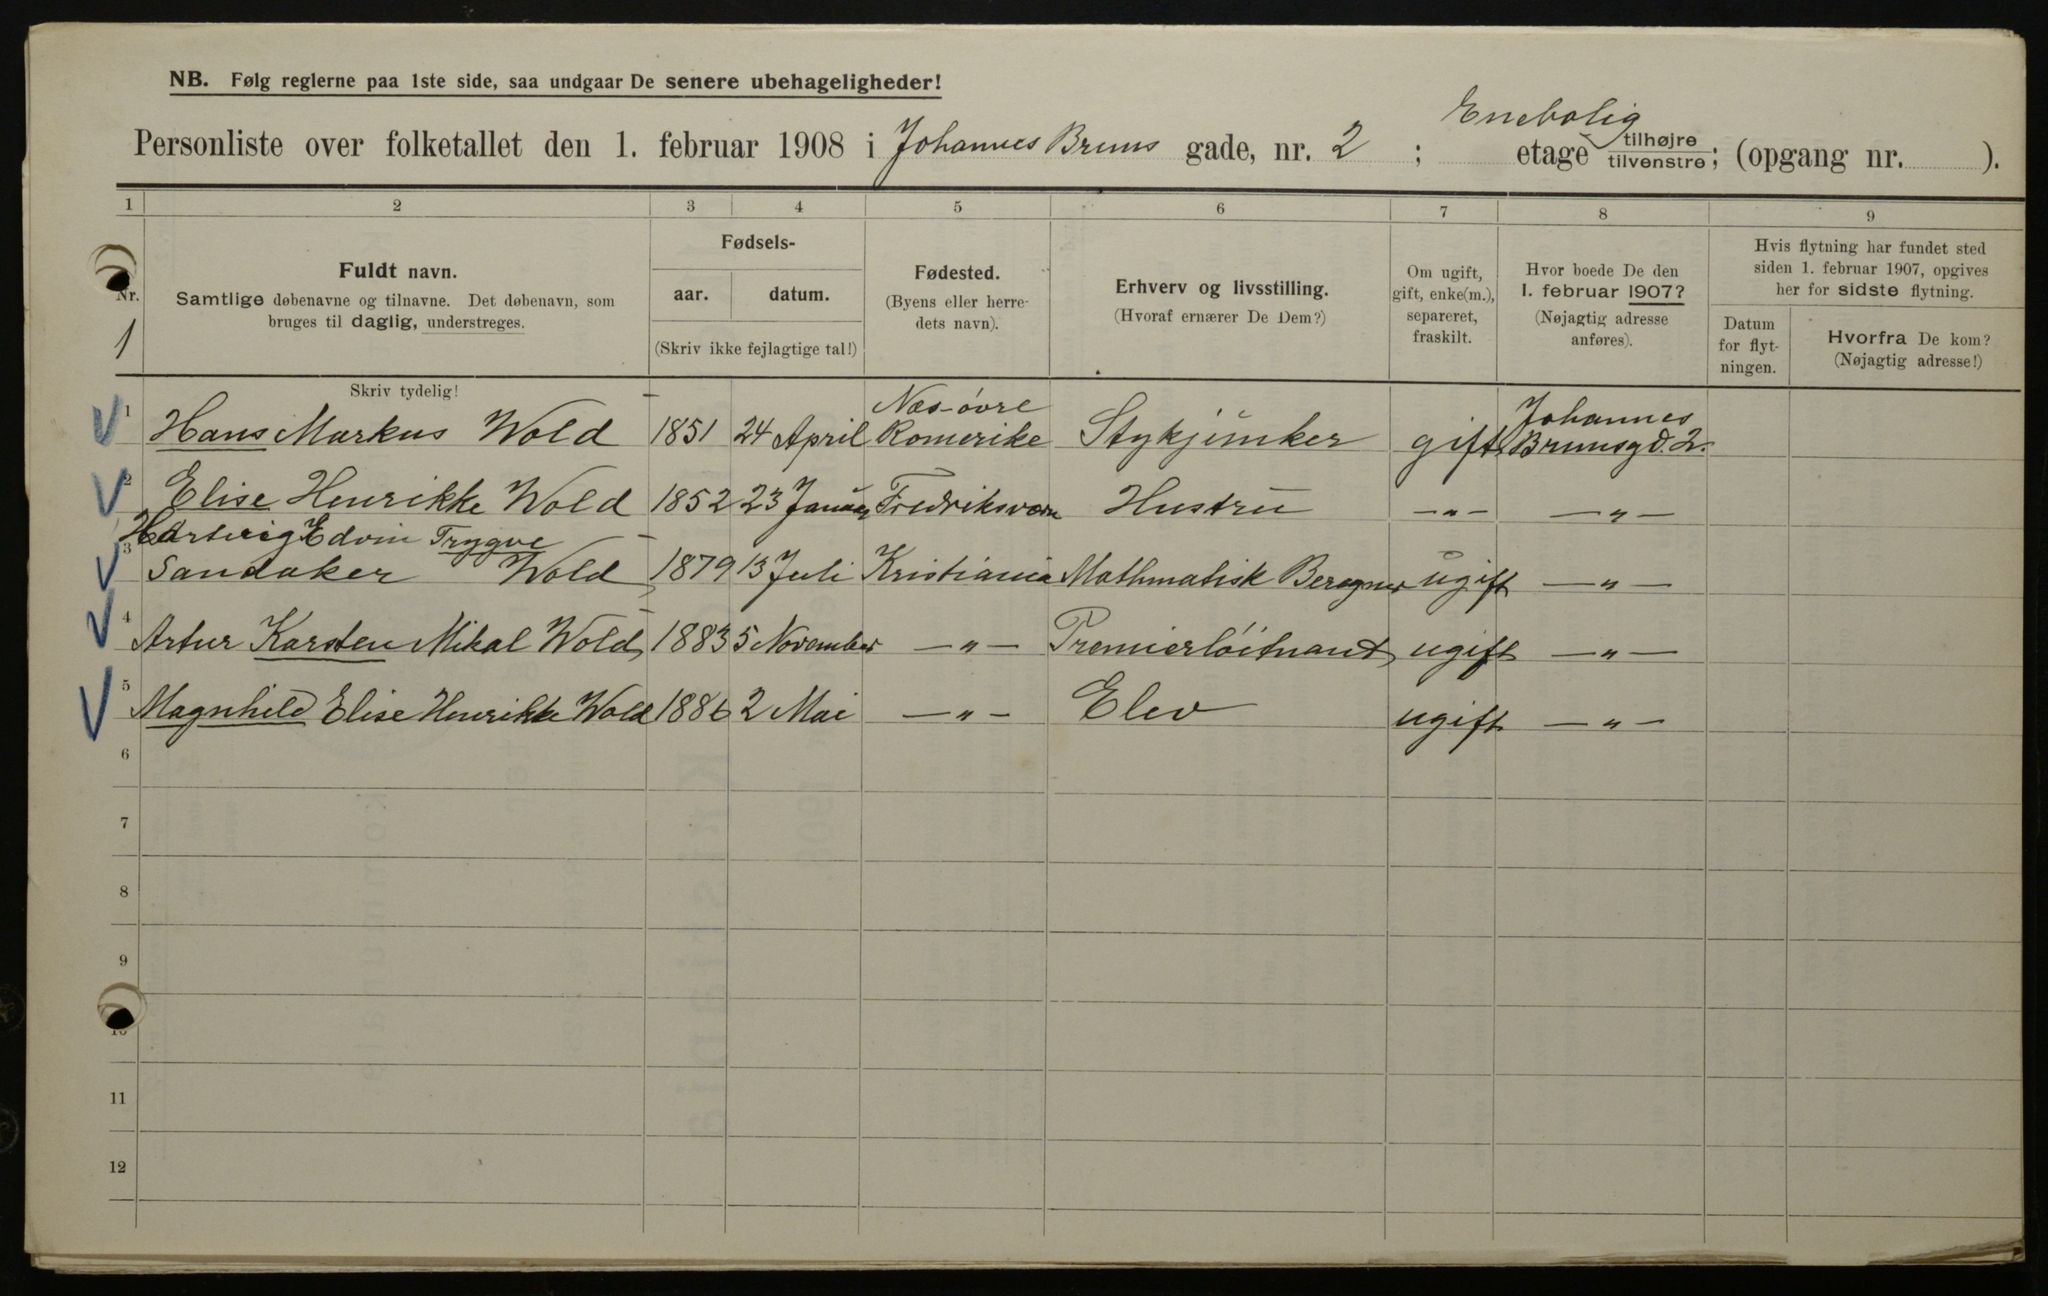 NB. Følg reglerne paa 1ste side, saa undgaar De senere ubehageligheder!
Enebolig
Personliste over folketallet den 1. februar 1908 i Johannes Bruns gade, nr. 2 ; etage tilhøjre/tilvenstre; (opgang nr. ).
1 2 3 4 5 6 7 8 9
Nr.
1
Fuldt navn.
Samtlige døbenavne og tilnavne. Det døbenavn, som
bruges til daglig, understreges.
Fødsels-
aar. datum.
(Skriv ikke fejlagtige tal!)
Fødested.
(Byens eller herre-
dets navn).
Erhverv og livsstilling.
(Hvoraf ernærer De Dem?)
Om ugift,
gift, enke(m.),
separeret,
fraskilt.
Hvor boede De den
1. februar 1907?
(Nøjagtig adresse
anføres).
Hvis flytning har fundet sted
siden 1. februar 1907, opgives
her for sidste flytning.
Datum
for flyt-
ningen.
Hvorfra De kom?
(Nøjagtig adresse!)
Skriv tydelig!
Næs-övre Johannes
1 Hans Markus Wold 1851 24 April Romerike Stykjunker gift Brunsgd. 2.
2 Elise Henrikke Wold 1852 23 Januar Fredriksværn Hustru —"— —"—
Hartvig Edvin Trygve
3 Sandaker Wold 1879 13 Juli Kristiania Mathmatisk Beregner ugift —"—
4 Artur Karsten Mikal Wold 1883 5 November —"— Premierlöitnant ugift —"—
5 Magnhild Elise Henrikke Wold 1886 2 Mai —"— Elev ugift —"—
6
7
8
9
10
11
12